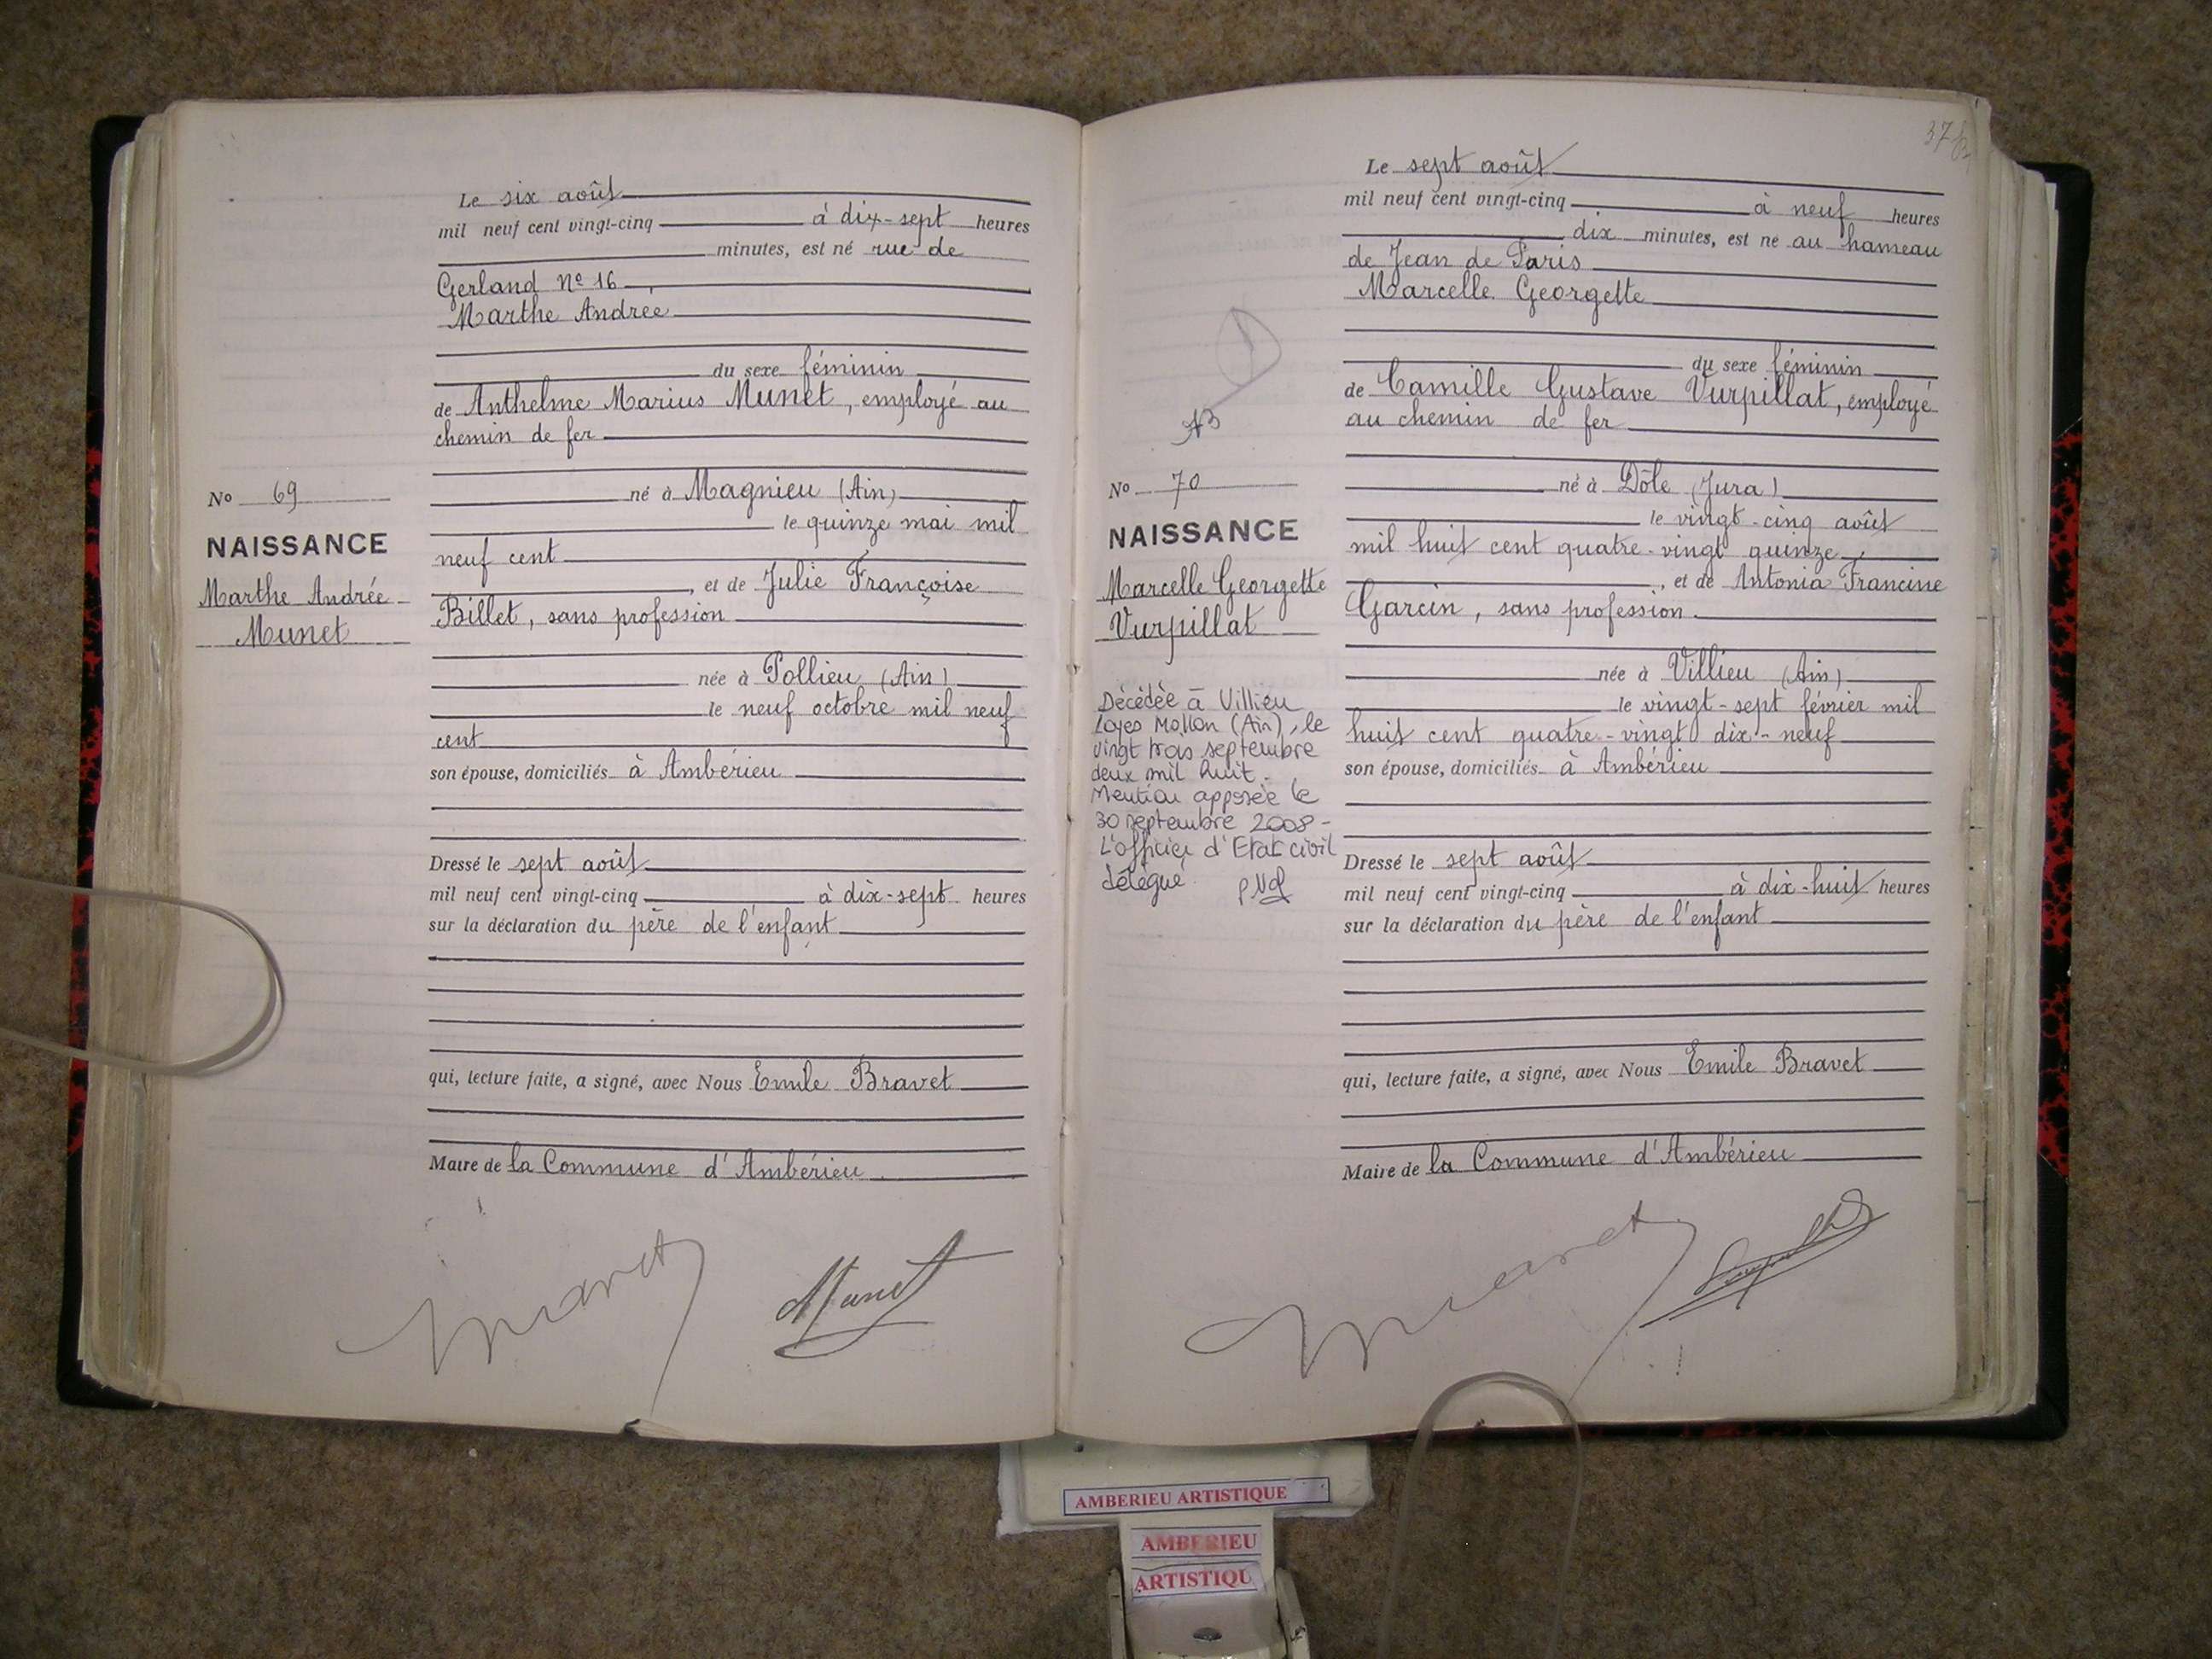 Le six août
mil neuf cent vingt-cinq à dix-sept heures
minutes, est né rue de
Gerland Nº 16
Marthe Andrée
du sexe féminin
de Anthelme Marius Munet, employé au
chemin de fer
né à Magnieu (Ain)
le quinze mai mil
neuf cent
, et de Julie Françoise
Billet, sans profession
née à Pollieu (Ain)
le neuf octobre mil neuf
cent
son épouse, domiciliés à Ambérieu
Dressé le sept août
mil neuf cent vingt-cinq à dix-sept heures
sur la déclaration du père de l'enfant
qui, lecture faite, a signé, avec Nous Emile Bravet
Maire de la Commune d'Ambérieu
Munet
No 69
NAISSANCE
Marthe Andrée
Munet
37
Le sept août
mil neuf cent vingt-cinq à neuf heures
dix minutes, est né au hameau
de Jean de Paris
Marcelle Georgette
du sexe féminin
de Camille Gustave Vurpillat, employé
au chemin de fer
né à Dôle (Jura)
le vingt-cinq août
mil huit cent quatre-vingt quinze
, et de Antonia Francine
Garcin, sans profession.
née à Villieu (Ain)
le vingt-sept février mil
huit cent quatre-vingt dix-neuf
son épouse, domiciliés à Ambérieu
Dressé le sept août
mil neuf cent vingt-cinq à dix-huit heures
sur la déclaration du père de l'enfant
qui, lecture faite, a signé, avec Nous Emile Bravet
Maire de la Commune d'Ambérieu
No 70
NAISSANCE
Marcelle Georgette
Vurpillat
Décédée à Villieu
Loyes Mollon (Ain), le
vingt trois septembre
deux mil huit.
Mention apposée le
30 septembre 2008-
L'officier d'Etat civil
délégué.
AMBERIEU ARTISTIQUE
AMBERIEU
ARTISTIQU